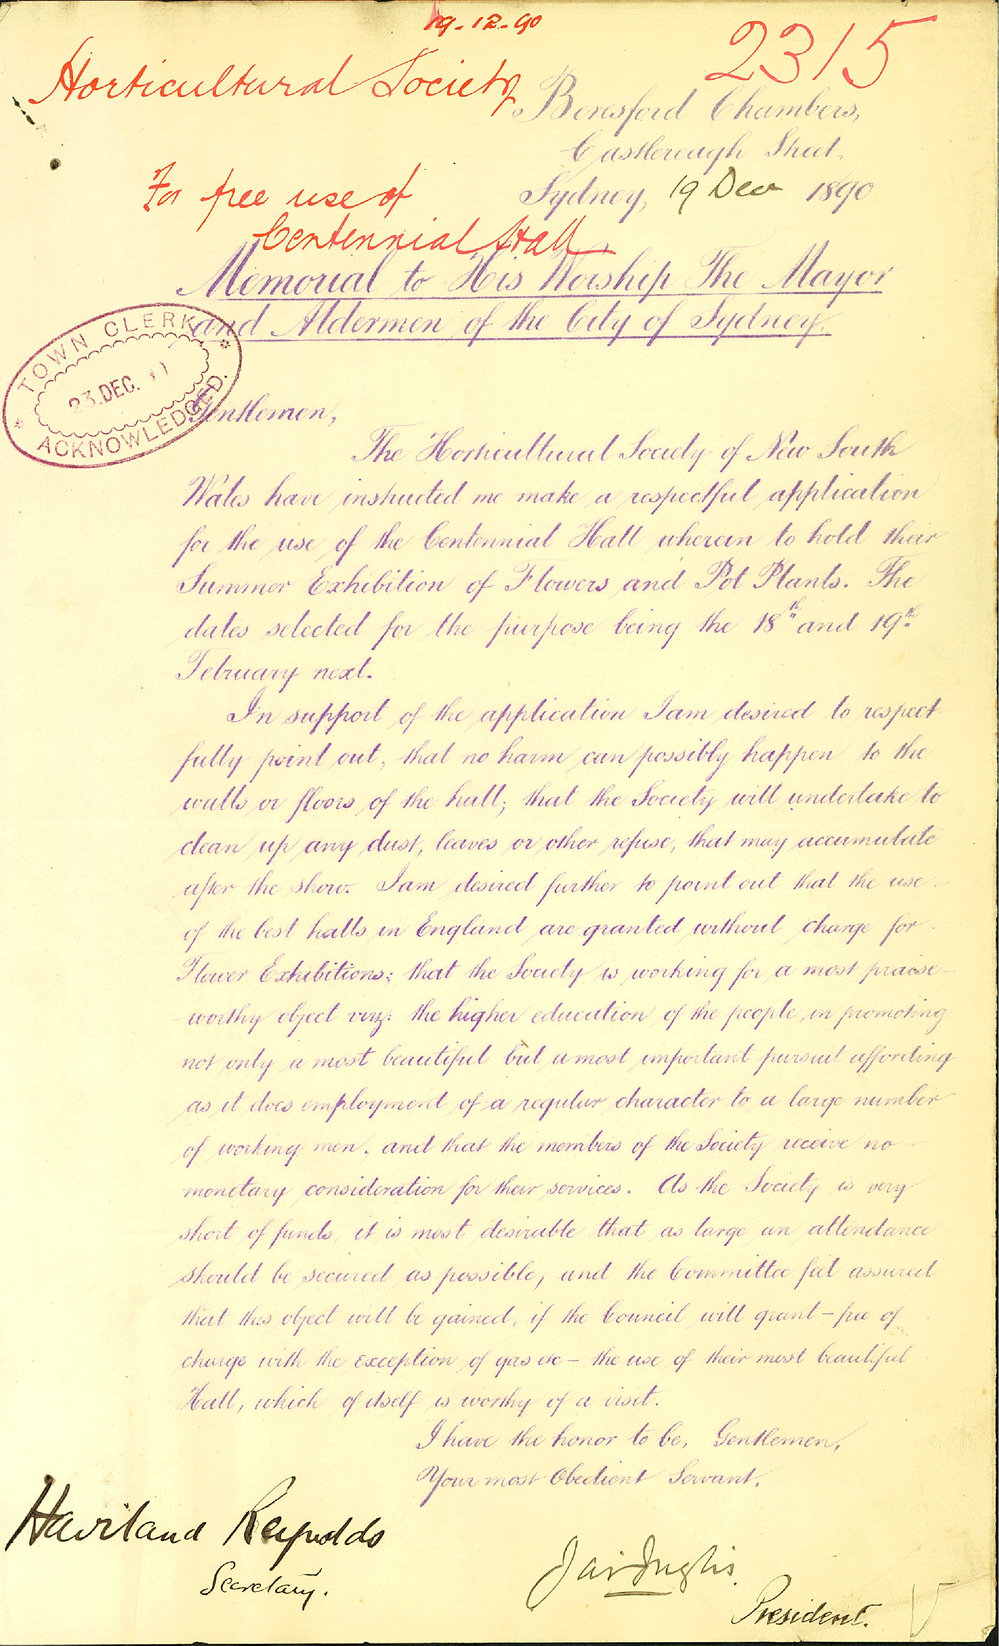 19-12-90
2315
Horticultural Society
Beresford Chambers,
Castlereagh Street.
For free use of
Sydney, 19 Dec 1890
Centennial Hall.
Memorial to His Worship The Mayor
and Aldermen of the City of Sydney.
TOWN CLERK
23. DEC.
ACKNOWLEDGED.
Gentlemen,
The Horticultural Society of New South
Wales have instructed me make a respectful application
for the use of the Centennial Hall wherein to hold their
Summer Exhibition of Flowers and Pot Plants. The
dates selected for the purpose being the 18th and 19th
February next.
In support of the application I am desired to respect
fully point out, that no harm can possibly happen to the
walls or floors of the hall; that the Society will undertake to
clean up any dust, leaves or other refuse, that may accumulate
after the show. I am desired further to point out that the use
of the best halls in England are granted without charge for
Flower Exhibitions; that the Society is working for a most praise-
worthy object viz: the higher education of the people in promoting
not only a most beautiful but a most important pursuit affording
as it does employment of a regular character to a large number
of working men, and that the members of the Society receive no
monetary consideration for their services. As the Society is very
short of funds, it is most desirable that as large an attendance
should be secured as possible, and the Committee feel assured
that this object will be gained, if the Council will grant - free of
charge with the exception of gas etc - the use of their most beautiful
Hall, which of itself is worthy of a visit.
I have the honor to be, Gentlemen,
Your most Obedient Servant.
Haviland Reynolds
Secretary.
Jas Inglis.
President.